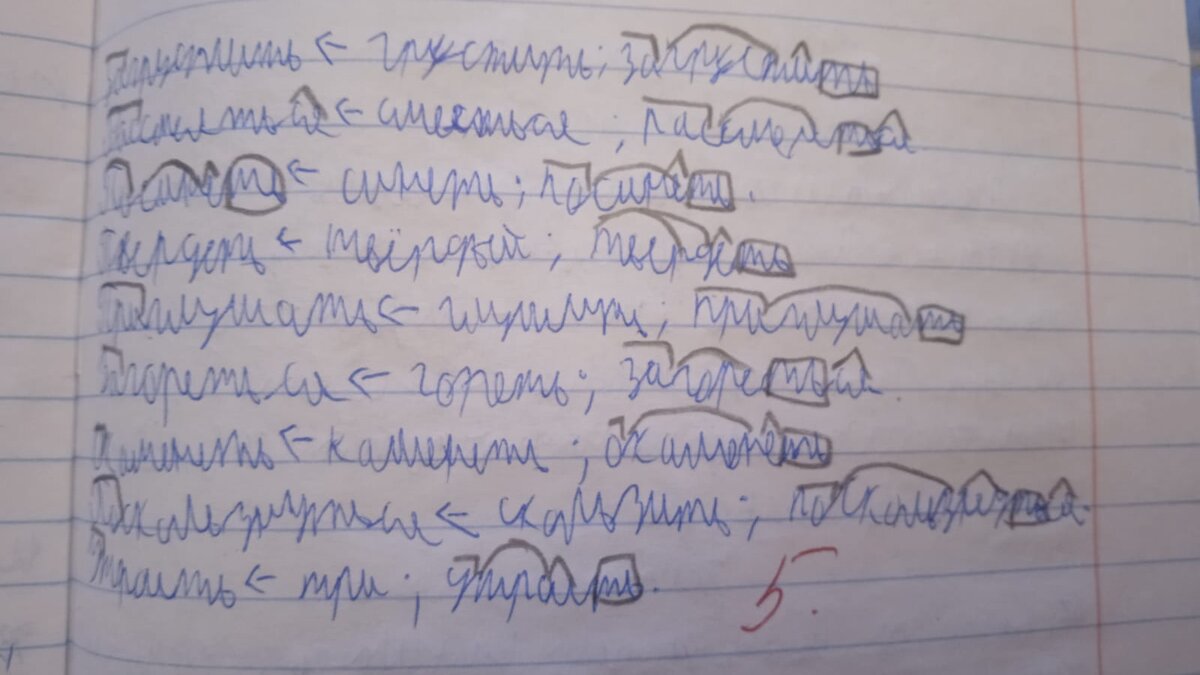 Загрустить ← грустить; загрустить
Рассмеяться ← смеяться; рассмеяться
Посинеть ← синеть; посинеть.
Твердеть ← твёрдый; твердеть
Приглушать ← глушить; приглушать
Загореться ← гореть; загореться
Окаменеть ← каменеть; окаменеть
Поскользнуться ← скользить; поскользнуться.
Утроить ← три; утроить. 5.